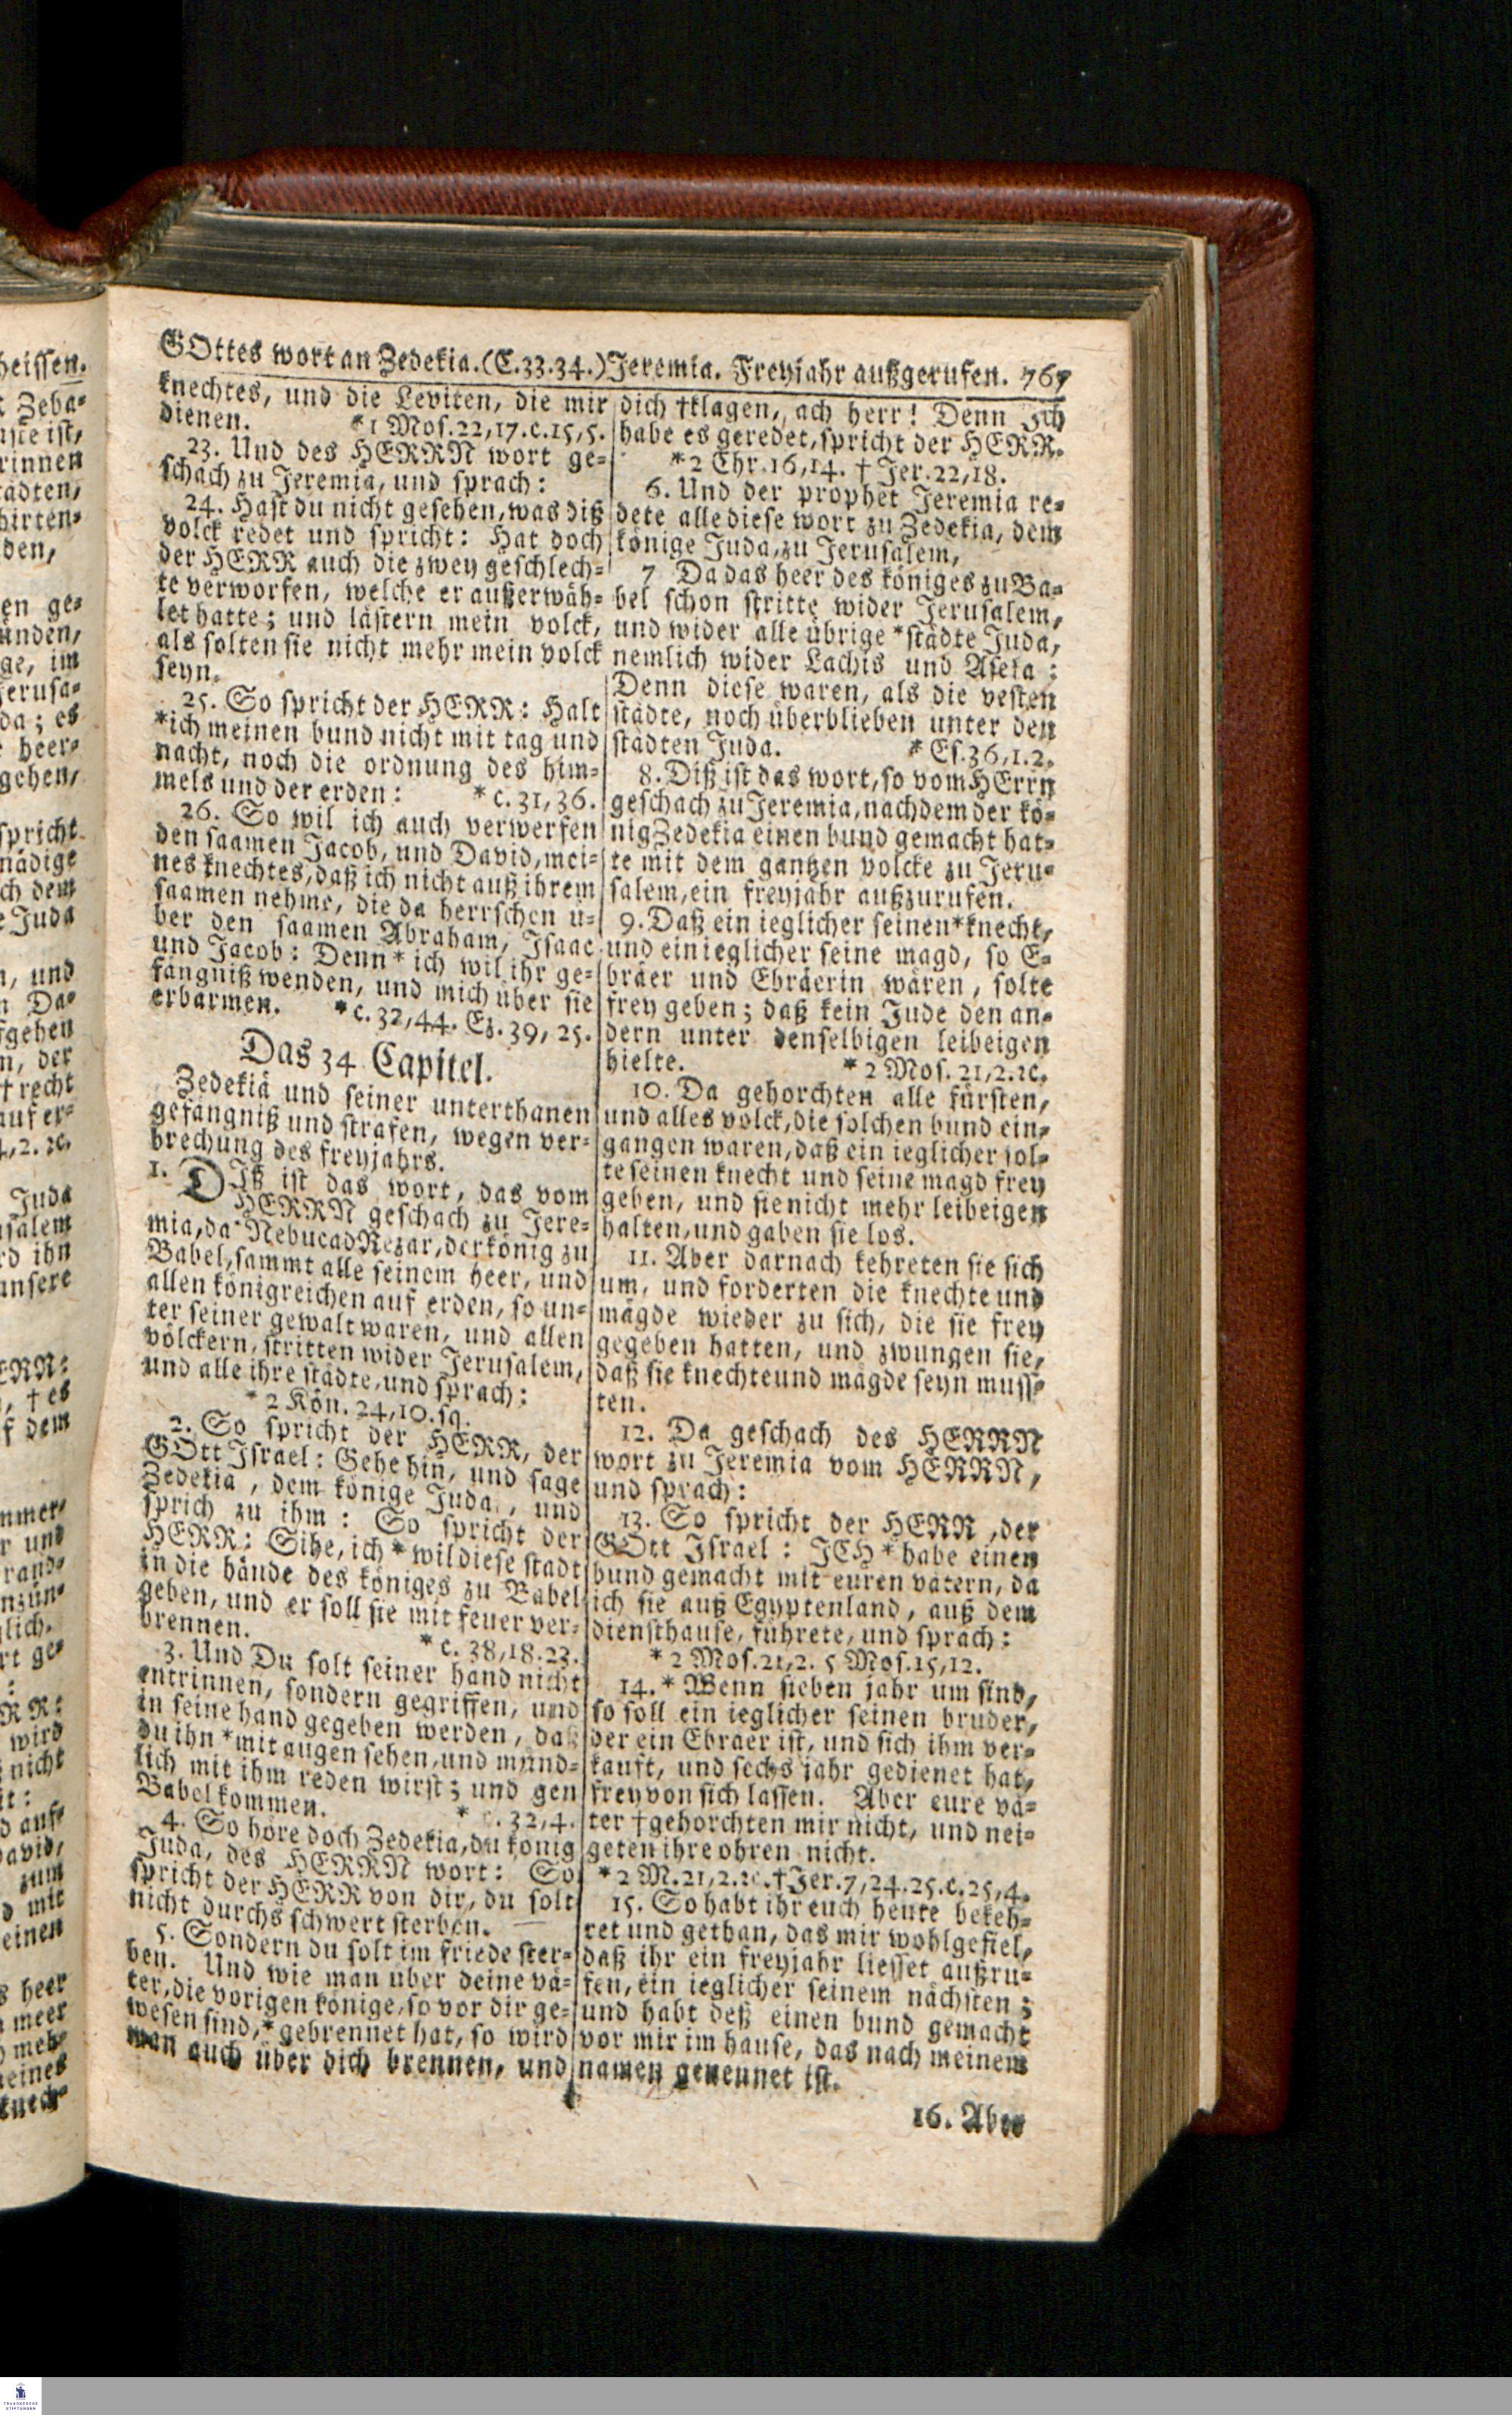 GOttes wort an Zedekia. (C.33.34.) Jeremia. Freyjahr außgerufen.
knechtes, und die Leviten, die mir
dienen. *1 Mos.22,17.c.15,5.
23. Und des HERRN wort ge-
schach zu Jeremia, und sprach:
24. Hast du nicht gesehen, was diß
volck redet und spricht: Hat doch
der HERR auch die zwey geschlech-
te verworfen, welche er außerwäh-
let hatte; und lästern mein volck,
als solten sie nicht mehr mein volck
seyn.
25. So spricht der HERR: Halt
*ich meinen bund nicht mit tag und
nacht, noch die ordnung des him-
mels und der erden: *c.31,36.
26. So wil ich auch verwerfen
den saamen Jacob, und David, mei-
nes knechtes, daß ich nicht auß ihrem
saamen nehme, die da herrschen ü-
ber den saamen Abraham, Isaac
und Jacob: Denn *ich wil ihr ge-
fängniß wenden, und mich über sie
erbarmen. *c.32,44. Ez.39,25.
Das 34 Capitel.
Zedekiä und seiner unterthanen
gefängniß und strafen, wegen ver-
brechung des freyjahrs.
1. DIß ist das wort, das vom
HERRN geschach zu Jere-
mia, da *NebucadNezar, der könig zu
Babel, sammt alle seinem heer, und
allen königreichen auf erden, so un-
ter seiner gewalt waren, und allen
völckern, stritten wider Jerusalem,
und alle ihre städte, und sprach:
*2 Kön.24,10.sq.
2. So spricht der HERR, der
GOtt Israel: Gehe hin, und sage
Zedekia, dem könige Juda, und
sprich zu ihm: So spricht der
HERR: Sihe, ich *wil diese stadt
in die hände des königes zu Babel
geben, und er soll sie mit feuer ver-
brennen. *c.38,18.23.
3. Und Du solt seiner hand nicht
entrinnen, sondern gegriffen, und
in seine hand gegeben werden, daß
du ihn *mit augen sehen, und münd-
lich mit ihm reden wirst; und gen
Babel kommen. *c.32,4.
4. So höre doch Zedekia, du könig
Juda, des HERRN wort: So
spricht der HERR von dir, du solt
nicht durchs schwert sterben.
5. Sondern du solt im friede ster-
ben. Und wie man über deine vä-
ter, die vorigen könige, so vor dir ge-
wesen sind, *gebrennet hat, so wird
man auch über dich brennen, und
dich †klagen, ach herr! Denn Ich
habe es geredet, spricht der HERR.
*2 Chr.16,14. † Jer.22,18.
6. Und der prophet Jeremia re-
dete alle diese wort zu Zedekia, dem
könige Juda, zu Jerusalem,
7 Da das heer des königes zu Ba-
bel schon stritte wider Jerusalem,
und wider alle übrige *städte Juda,
nemlich wider Lachis und Aseka:
Denn diese waren, als die vesten
städte, noch überblieben unter den
städten Juda. *Es.36,1.2.
8. Diß ist das wort, so vom HErrn
geschach zu Jeremia, nachdem der kö-
nig Zedekia einen bund gemacht hat-
te mit dem gantzen volcke zu Jeru-
salem, ein freyjahr außzurufen.
9. Daß ein ieglicher seinen *knecht,
und ein ieglicher seine magd, so E-
bräer und Ebräerin wären, solte
frey geben; daß kein Jude den an-
dern unter denselbigen leibeigen
hielte. *2 Mos.21,2.ꝛc.
10. Da gehorchten alle fürsten,
und alles volck, die solchen bund ein-
gangen waren, daß ein ieglicher sol-
te seinen knecht und seine magd frey
geben, und sie nicht mehr leibeigen
halten, und gaben sie los.
11. Aber darnach kehreten sie sich
um, und forderten die knechte und
mägde wieder zu sich, die sie frey
gegeben hatten, und zwungen sie,
daß sie knechte und mägde seyn muss-
ten.
12. Da geschach des HERRN
wort zu Jeremia vom HERRN,
und sprach:
13. So spricht der HERR, der
GOtt Israel: ICH *habe einen
bund gemacht mit euren vätern, da
ich sie auß Egyptenland, auß dem
diensthause, führete, und sprach:
*2 Mos.21,2. 5 Mos.15,12.
14. *Wenn sieben jahr um sind,
so soll ein ieglicher seinen bruder,
der ein Ebräer ist, und sich ihm ver-
kauft, und sechs jahr gedienet hat,
frey von sich lassen. Aber eure vä-
ter †gehorchten mir nicht, und nei-
geten ihre ohren nicht.
*2 M.21,2.ꝛc. †Jer.7,24.25.c.25,4.
15. So habt ihr euch heute bekeh-
ret und gethan, das mir wohlgefiel,
daß ihr ein freyjahr liesset außru-
fen, ein ieglicher seinem nächsten;
und habt deß einen bund gemacht
vor mir im hause, das nach meinem
namen genennet ist.
16. Aber